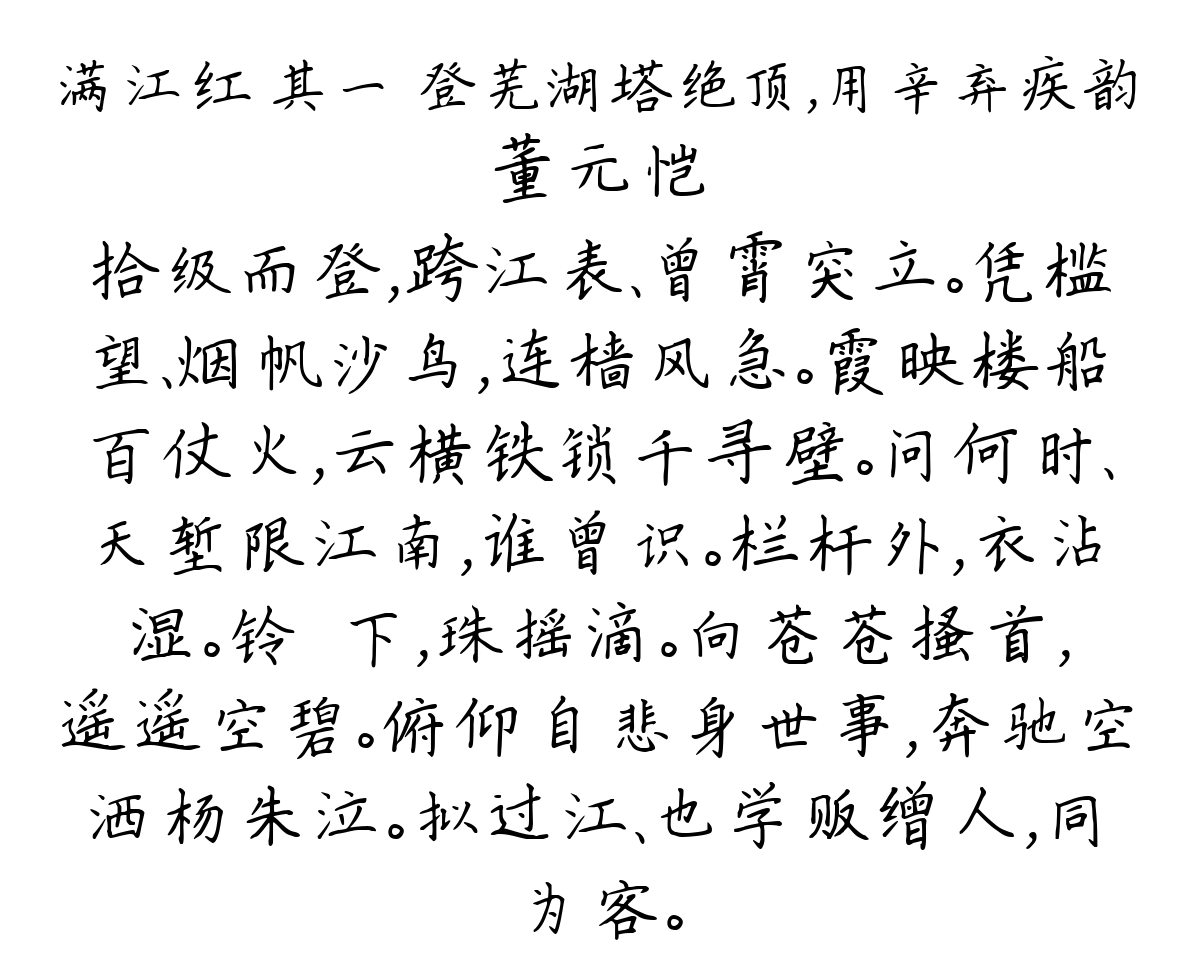 满江红 其一 登芜湖塔绝顶,用辛弃疾韵
董元恺
拾级而登,跨江表、曾霄突立。凭槛
望、烟帆沙鸟,连樯风急。霞映楼船
百仗火,云横铁锁千寻壁。问何时、
天堑限江南,谁曾识。栏杆外,衣沾
湿。铃 下,珠摇滴。向苍苍搔首,
遥遥空碧。俯仰自悲身世事,奔驰空
洒杨朱泣。拟过江、也学贩缯人,同
为客。